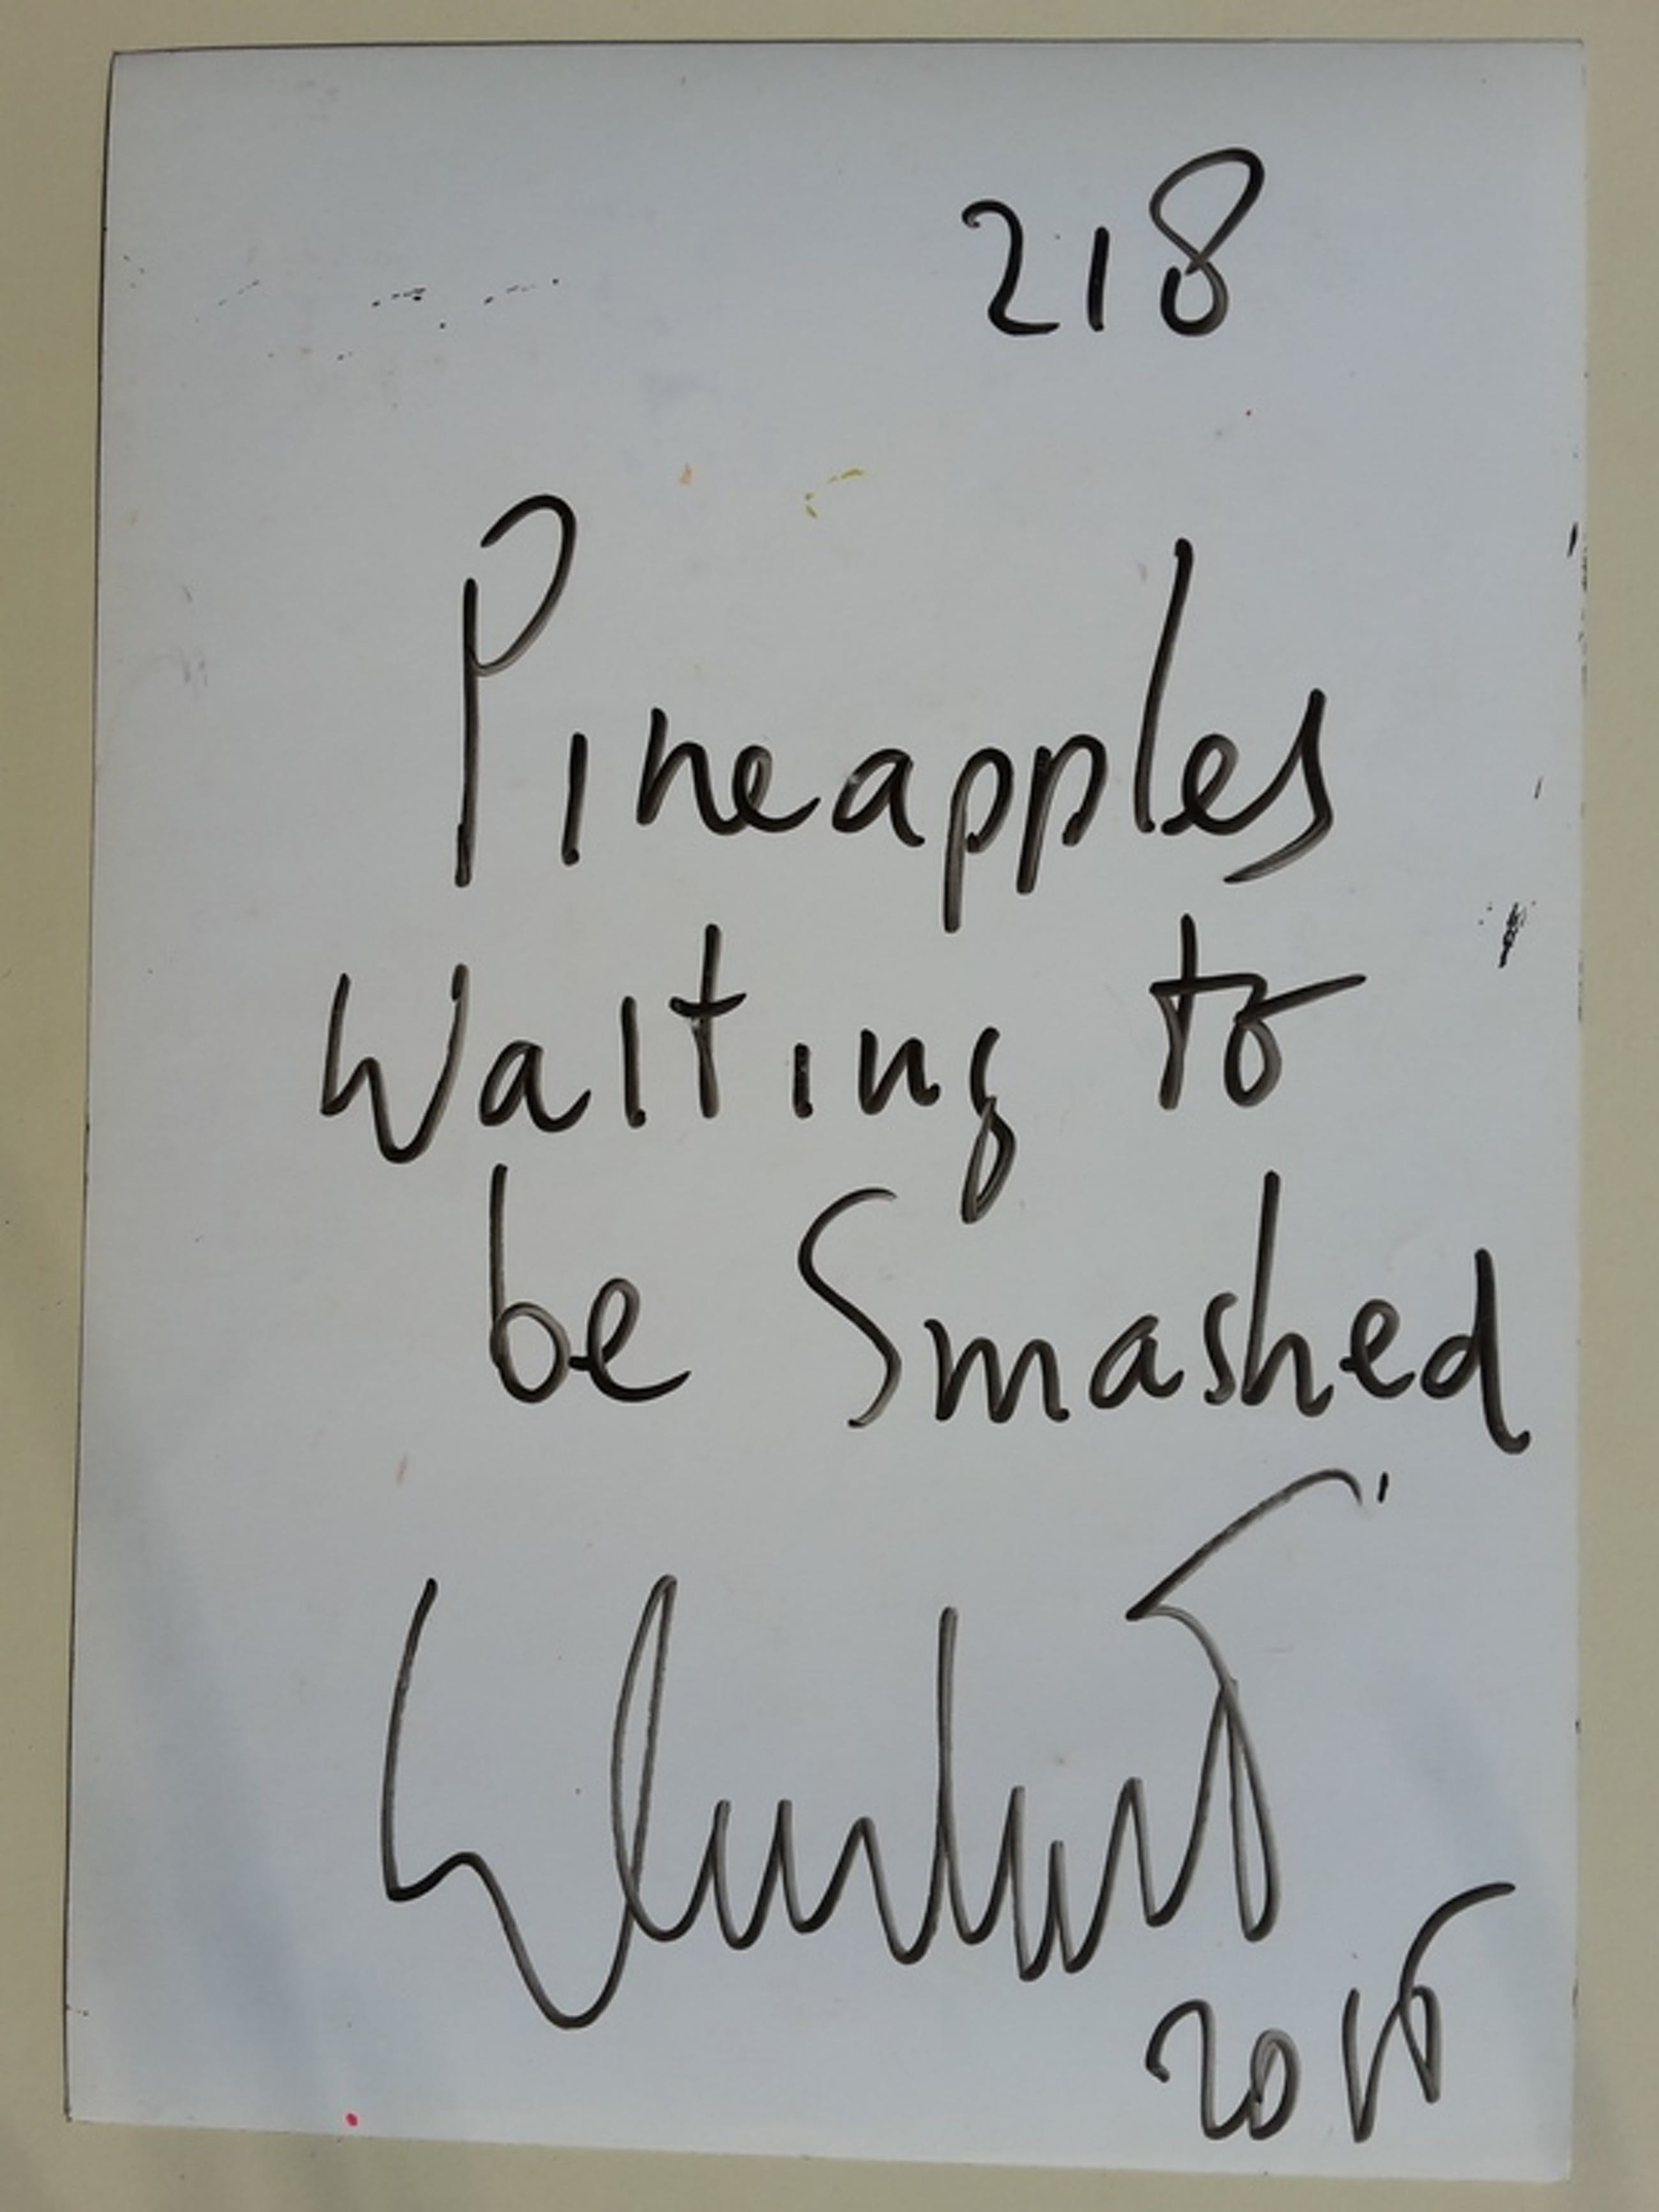 218
Pineapples
Waiting to
be Smashed